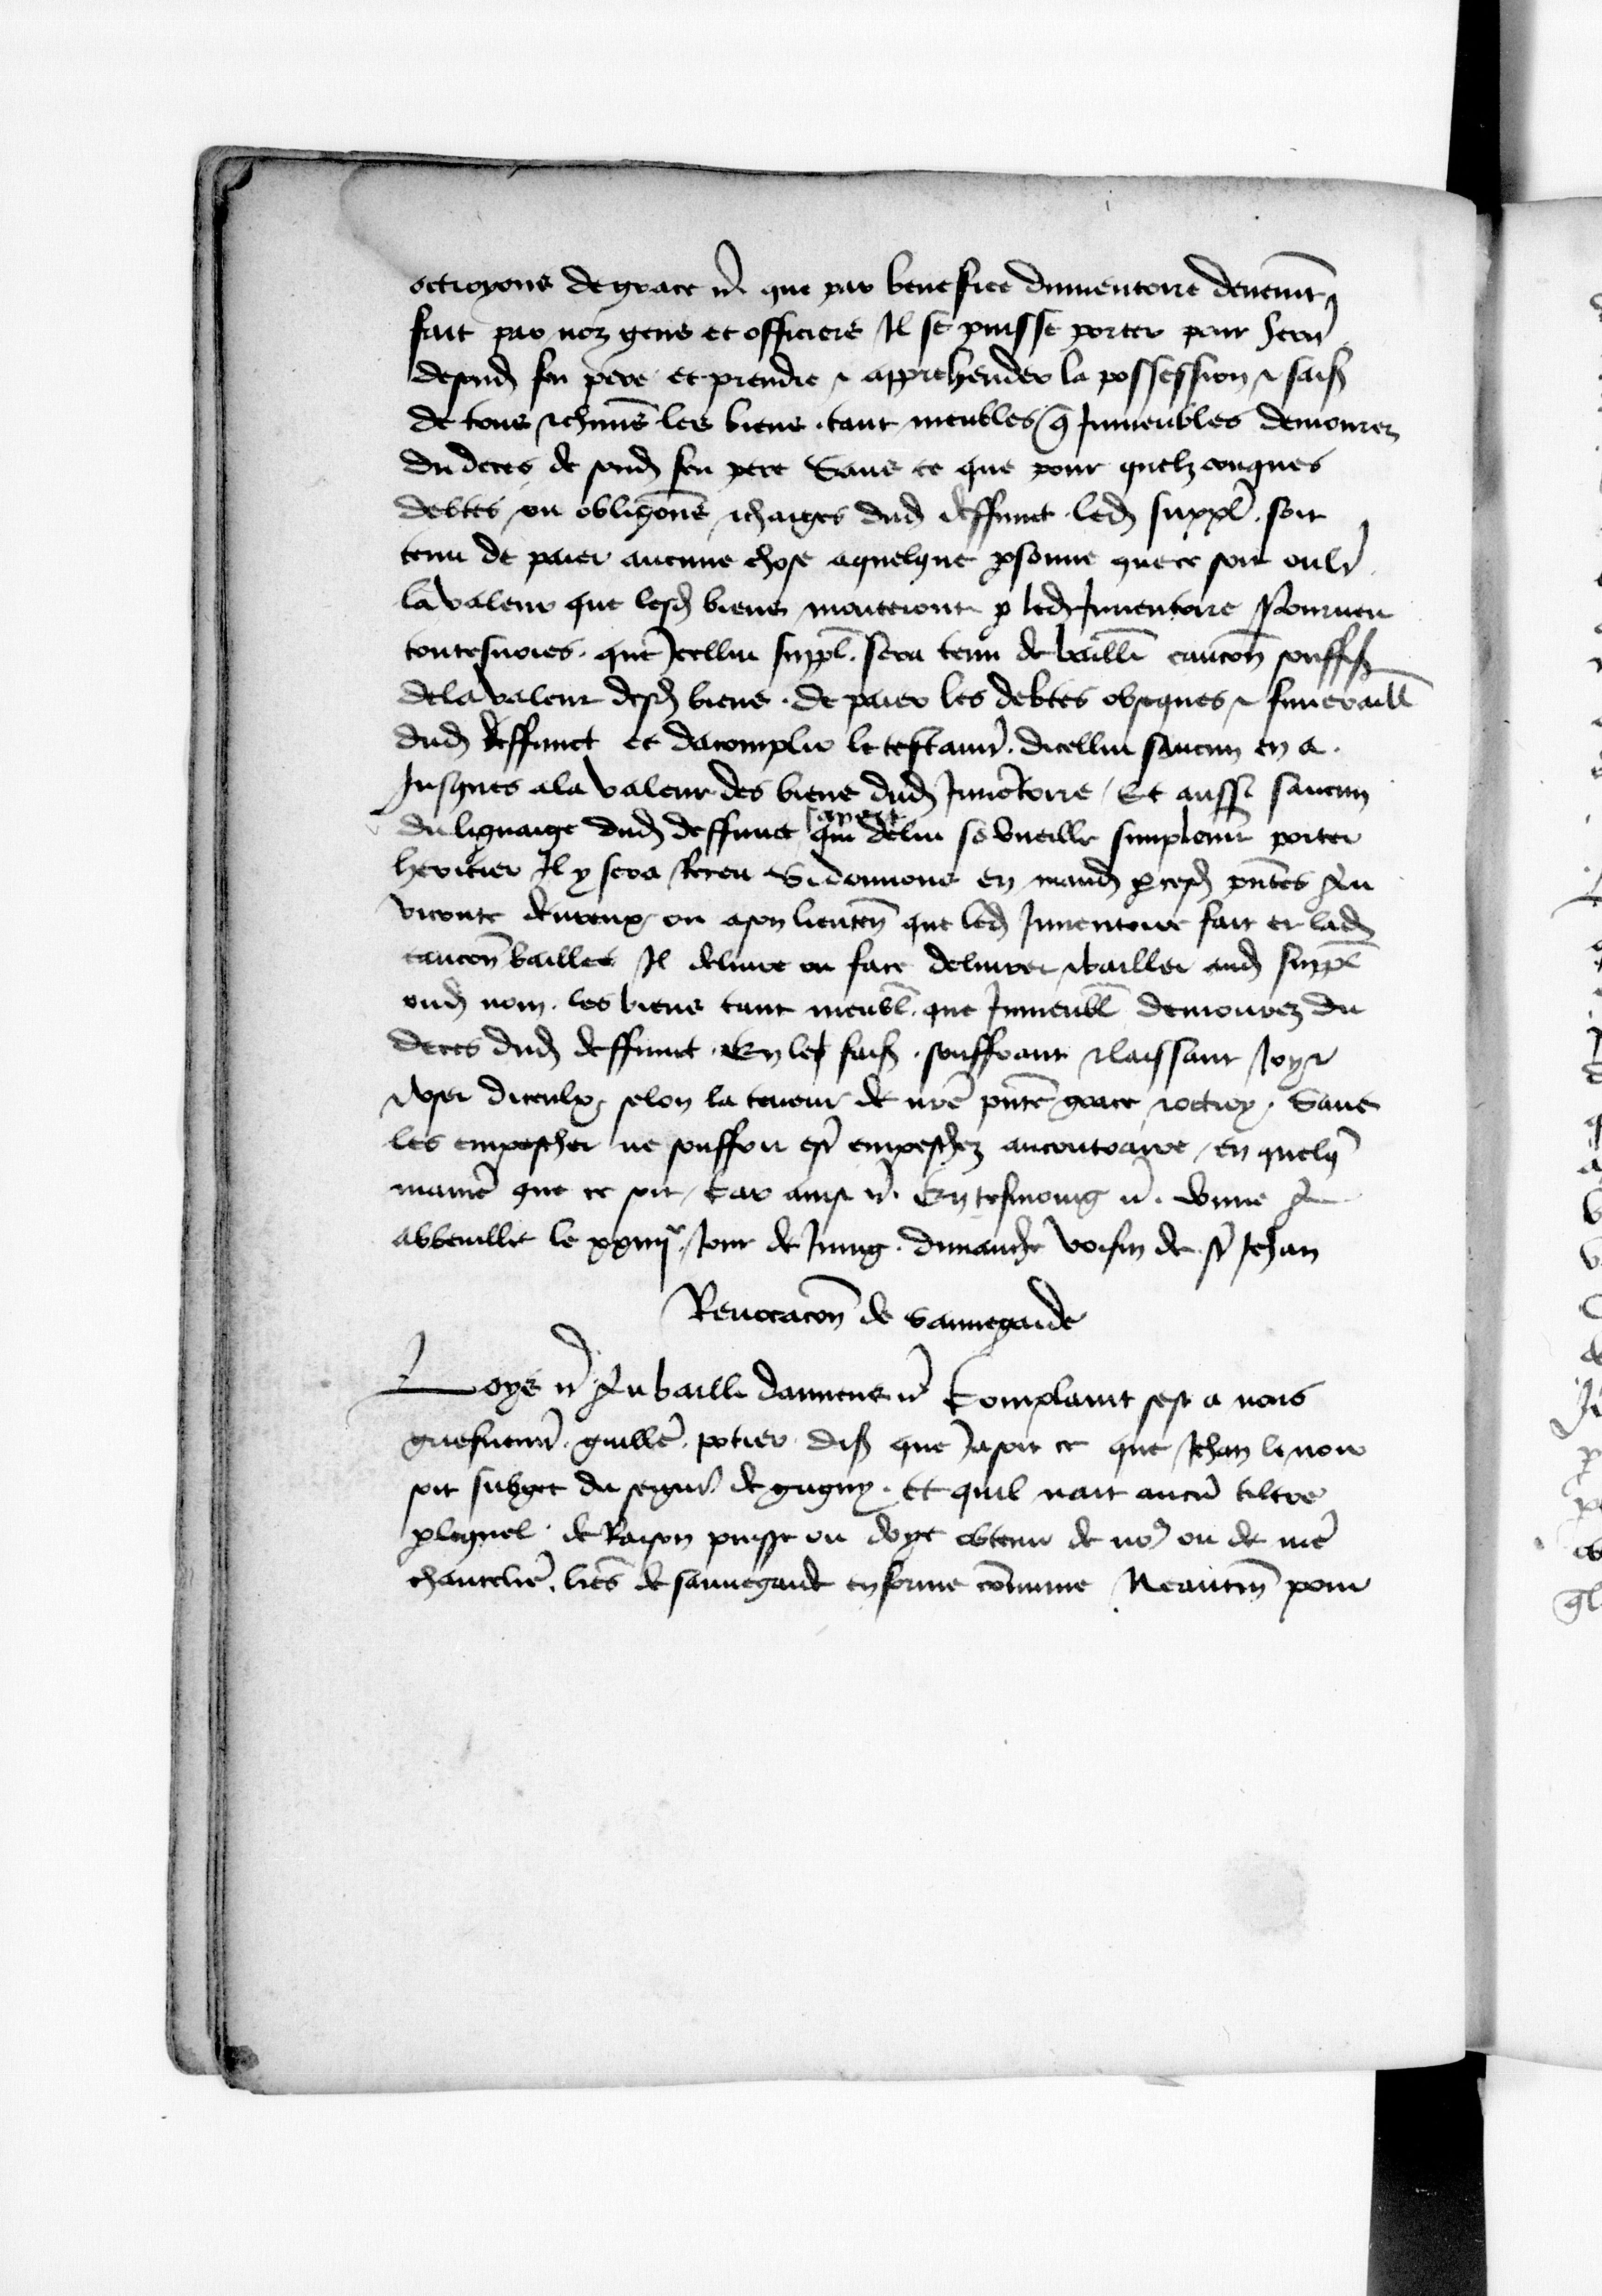 octroyons de grace &c que par benefice dinventoire deuement
fait par noz gens et officiers Il se puisse porter pour herit
desond feu pere et prendre & apprehender la possession & sais
de tous & chuns les biens tant meubles q Immeubles demourez
du deces de sond feu pere Sans ce que pour quelzconques
debtes ou obligons & charges dud deffunct led suppl soit
tenu de paier aucune chose aquelque psonne que ce soit oultr
la valeur que lesd biens monteront p led Inventoire Pourveu
toutesvoies que Icellui suppl sera tenu de baill caucon souffis
de la valeur desd biens de paier les debtes obseques & funeraill
dud deffunct et dacomplir le testamt dicellui saucun en a
Jusques ala valeur des biens dud Inventoire Et aussi saucun
du lignaige dud deffunct apres que delui se vueille simplemt porter
heritier Il y sera Receu Si donnons en mand p cesd pntes Au
viconte devreux ou ason lieuten que led Inventoire fait et lad
caucon baillee Il delivre ou face delivrer & bailler aud suppl
oud nom les biens tant meubl que Immeubl demourez du
deces dud deffunct En les fais souffrant & laissant Joyr
& user diceulx selon la teneur de nre pnte grace & octroy Sans
les empescher ne souffrir estr empeschez aucontraire En quelq
manie que ce soit Car ainsi &c En tesmoing &c Donne A
abbeville le xxiiije Jour de Juing dimanche voisin de st Jehan
Revocacon de sauvegarde
Loys &c Au bailli damiens &c Complaint sest a nous
griefvemt guille potier dist que Jasoit ce que Jehan le noir
soit subget du seigneur de gugny Et quil nait aucun tiltre
p lequel de Raison puisse ou doye obtenir de nos ou de nre
chancelie lres de sauvegarde en forme commune Neantm pour